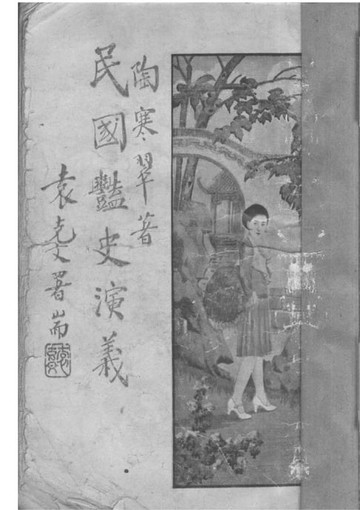 陶寒翠著
民國豔史演義
袁克文署耑